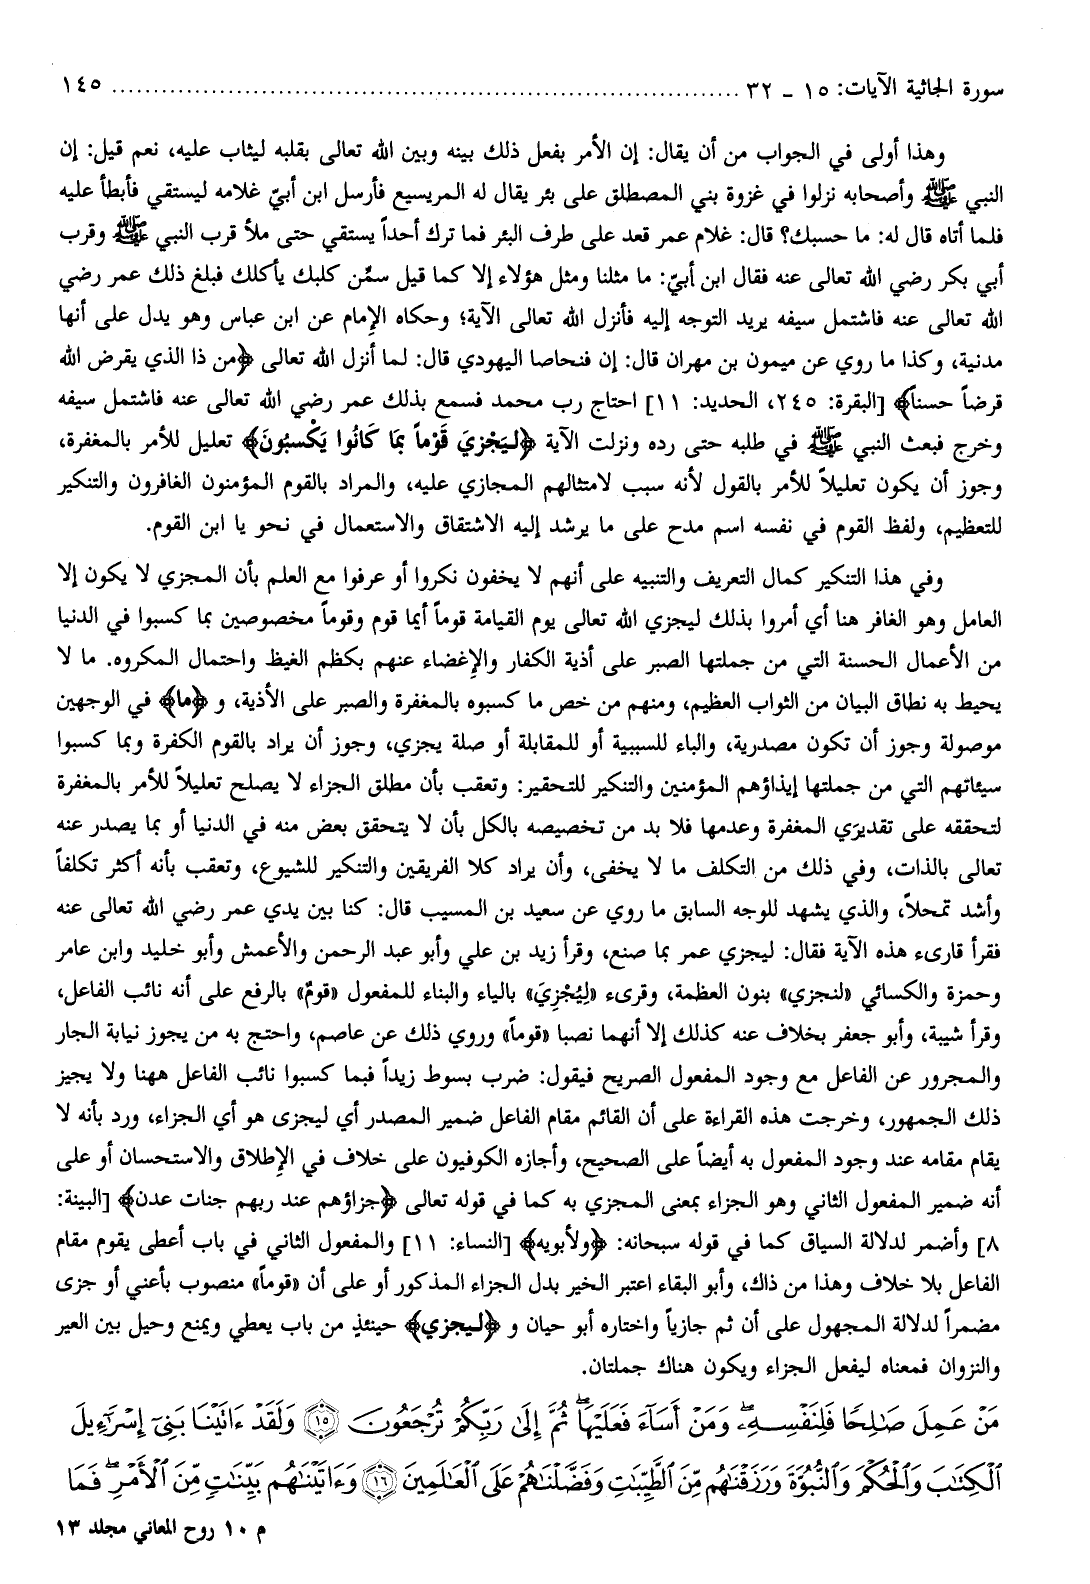 سورة الجاثية الآيات: ١٥ ـ ٣٢ ........................................................................ ١٤٥
وهذا أولى في الجواب من أن يقال: إن الأمر بفعل ذلك بينه وبين الله تعالى بقلبه ليثاب عليه، نعم قيل: إن
النبي ﷺ وأصحابه نزلوا في غزوة بني المصطلق على بئر يقال له المريسيع فأرسل ابن أبيّ غلامه ليستقي فأبطأ عليه
فلما أتاه قال له: ما حسبك؟ قال: غلام عمر قعد على طرف البئر فما ترك أحداً يستقي حتى ملأ قرب النبي ﷺ وقرب
أبي بكر رضي الله تعالى عنه فقال ابن أبيّ: ما مثلنا ومثل هؤلاء إلا كما قيل سمّن كلبك يأكلك فبلغ ذلك عمر رضي
الله تعالى عنه فاشتمل سيفه يريد التوجه إليه فأنزل الله تعالى الآية؛ وحكاه الإمام عن ابن عباس وهو يدل على أنها
مدنية، وكذا ما روي عن ميمون بن مهران قال: إن فنحاصا اليهودي قال: لما أنزل الله تعالى ﴿من ذا الذي يقرض الله
قرضاً حسناً﴾ [البقرة: ٢٤٥، الحديد: ١١] احتاج رب محمد فسمع بذلك عمر رضي الله تعالى عنه فاشتمل سيفه
وخرج فبعث النبي ﷺ في طلبه حتى رده ونزلت الآية ﴿لِيَجْزِيَ قَوْماً بِمَا كَانُوا يَكْسِبُونَ﴾ تعليل للأمر بالمغفرة،
وجوز أن يكون تعليلاً للأمر بالقول لأنه سبب لامتثالهم المجازي عليه، والمراد بالقوم المؤمنون الغافرون والتنكير
للتعظيم، ولفظ القوم في نفسه اسم مدح على ما يرشد إليه الاشتقاق والاستعمال في نحو يا ابن القوم.
وفي هذا التنكير كمال التعريف والتنبيه على أنهم لا يخفون نكروا أو عرفوا مع العلم بأن المجزي لا يكون إلا
العامل وهو الغافر هنا أي أمروا بذلك ليجزي الله تعالى يوم القيامة قوماً أيما قوم وقوماً مخصوصين بما كسبوا في الدنيا
من الأعمال الحسنة التي من جملتها الصبر على أذية الكفار والإغضاء عنهم بكظم الغيظ واحتمال المكروه. ما لا
يحيط به نطاق البيان من الثواب العظيم، ومنهم من خص ما كسبوه بالمغفرة والصبر على الأذية، و ﴿ما﴾ في الوجهين
موصولة وجوز أن تكون مصدرية، والباء للسببية أو للمقابلة أو صلة يجزي، وجوز أن يراد بالقوم الكفرة وبما كسبوا
سيئاتهم التي من جملتها إيذاؤهم المؤمنين والتنكير للتحقير: وتعقب بأن مطلق الجزاء لا يصلح تعليلاً للأمر بالمغفرة
لتحققه على تقديرَي المغفرة وعدمها فلا بد من تخصيصه بالكل بأن لا يتحقق بعض منه في الدنيا أو بما يصدر عنه
تعالى بالذات، وفي ذلك من التكلف ما لا يخفى، وأن يراد كلا الفريقين والتنكير للشيوع، وتعقب بأنه أكثر تكلفاً
وأشد تمحلاً، والذي يشهد للوجه السابق ما روي عن سعيد بن المسيب قال: كنا بين يدي عمر رضي الله تعالى عنه
فقرأ قارىء هذه الآية فقال: ليجزي عمر بما صنع، وقرأ زيد بن علي وأبو عبد الرحمن والأعمش وأبو خليد وابن عامر
وحمزة والكسائي «لنجزي» بنون العظمة، وقرىء «لِيُجْزِيَ» بالياء والبناء للمفعول «قومٌ» بالرفع على أنه نائب الفاعل،
وقرأ شيبة، وأبو جعفر بخلاف عنه كذلك إلا أنهما نصبا «قوماً» وروي ذلك عن عاصم، واحتج به من يجوز نيابة الجار
والمجرور عن الفاعل مع وجود المفعول الصريح فيقول: ضرب بسوط زيداً فبما كسبوا نائب الفاعل ههنا ولا يجيز
ذلك الجمهور، وخرجت هذه القراءة على أن القائم مقام الفاعل ضمير المصدر أي ليجزى هو أي الجزاء، ورد بأنه لا
يقام مقامه عند وجود المفعول به أيضاً على الصحيح، وأجازه الكوفيون على خلاف في الإطلاق والاستحسان أو على
أنه ضمير المفعول الثاني وهو الجزاء بمعنى المجزي به كما في قوله تعالى ﴿جزاؤهم عند ربهم جنات عدن﴾ [البينة:
٨] وأضمر لدلالة السياق كما في قوله سبحانه: ﴿ولأبويه﴾ [النساء: ١١] والمفعول الثاني في باب أعطى يقوم مقام
الفاعل بلا خلاف وهذا من ذاك، وأبو البقاء اعتبر الخير بدل الجزاء المذكور أو على أن «قوماً» منصوب بأعني أو جزى
مضمراً لدلالة المجهول على أن ثم جازياً واختاره أبو حيان و ﴿ليجزي﴾ حينئذٍ من باب يعطي ويمنع وحيل بين العير
والنزوان فمعناه ليفعل الجزاء ويكون هناك جملتان.
مَنْ عَمِلَ صَٰلِحًا فَلِنَفْسِهِۦ ۖ وَمَنْ أَسَآءَ فَعَلَيْهَا ۖ ثُمَّ إِلَىٰ رَبِّكُمْ تُرْجَعُونَ ﴿١٥﴾ وَلَقَدْ ءَاتَيْنَا بَنِىٓ إِسْرَٰٓءِيلَ
ٱلْكِتَٰبَ وَٱلْحُكْمَ وَٱلنُّبُوَّةَ وَرَزَقْنَٰهُم مِّنَ ٱلطَّيِّبَٰتِ وَفَضَّلْنَٰهُمْ عَلَى ٱلْعَٰلَمِينَ ﴿١٦﴾ وَءَاتَيْنَٰهُم بَيِّنَٰتٍ مِّنَ ٱلْأَمْرِ ۖ فَمَا
م ١٠ روح المعاني مجلد ١٣